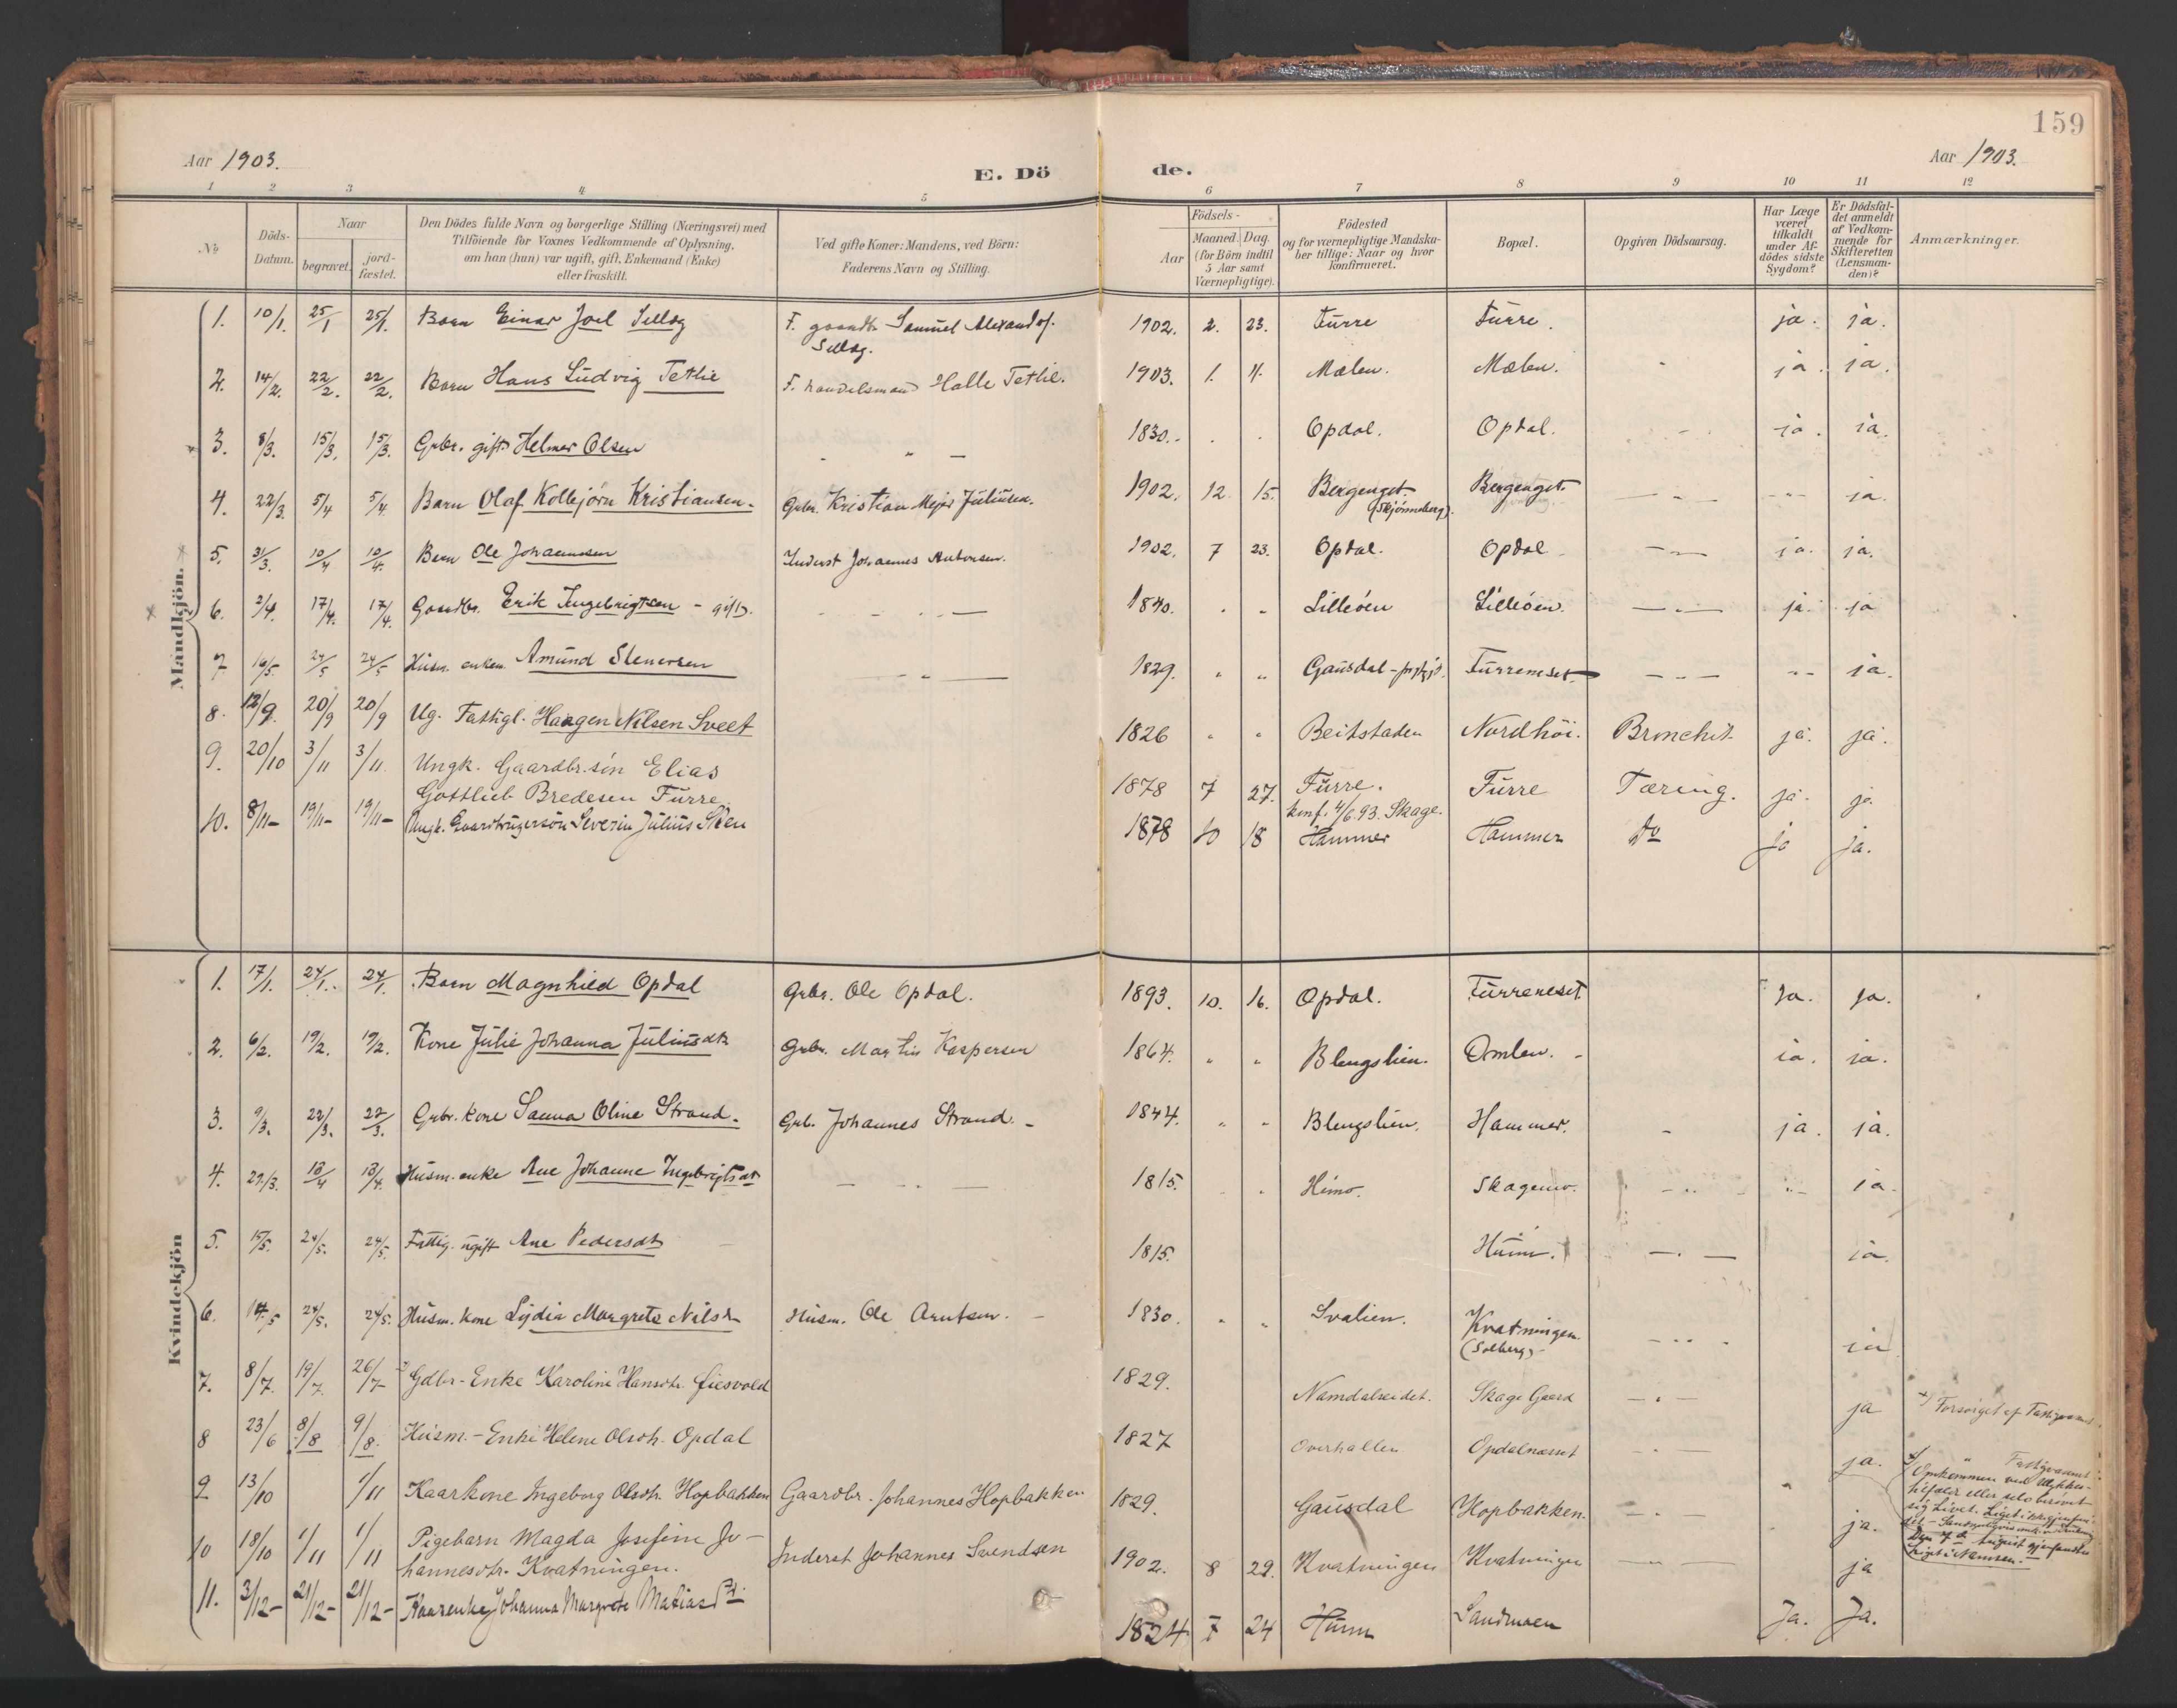 159
Aar 1903.
E. Dö
de.
Aar 1903.
1 2 3 4 5 6 7 8 9 10 11 12
No
Döds-Datum.
Naar
begravet.
jord-fæstet.
Den Dödes fulde Navn og borgerlige Stilling (Næringsvei) med
Tilföiende for Voxnes Vedkommende af Oplysning.
om han (hun) var ugift, gift, Enkemand (Enke)
eller fraskilt.
Ved gifte Koner: Mandens, ved Börn:
Faderens Navn og Stilling.
Födsels-
Aar
Maaned. Dag.
(for Börn indtil
5 Aar samt
Værnepligtige).
Födested
og for værnepligtige Mandska-
ber tillige: Naar og hvor
konfirmeret.
Bopæl.
Opgiven Dödsaarsag.
Har Læge
været
tilkaldt
under Af-
dödes sidste
Sygdom?
Er Dödsfal-
det anmeldt
af Vedkom-
mende for
Skifteretten
(Lensman-
den)?
Anmærkninger.
Mandkjön.
1. 10/1. 25/1 25/1. Barn Einar Joel Selläg F. gaardbr. Samuel Alexands. 1902. 2. 23. Furre Furre. ja. ja.
Selläg.
2. 14/2. 22/2. 22/2. Barn Hans Ludvig Tetlie F. handelsmand Halle Tetlie. 1903. 1. 4. Mælen. Mælen. ja. ja.
3. 8/3. 15/3. 15/3. Grbr. gift Helmer Olsen 1830. Opdal. Opdal. ja. ja.
4. 22/3. 5/4 5/4. Barn Olaf Kolbjørn Kristiansen. Grbr. Kristian Mejer Juliusen. 1902. 12. 15. Bergenget. Bergenget. ja.
(Skjønneberg).
5. 31/3. 10/4 10/4. Barn Ole Johannesen Inderst Johannes Antonsen. 1902. 7 23. Opdal. Opdal ja. ja.
6. 3/4. 17/4. 17/4. Gaardbr. Erik Ingebrigtsen - gift. 1840. Lilleöen Lilleöen. ja. ja
7 16/5. 24/5 24/5 Husm. enkem. Amund Stenersen 1829. Gausdal - prstgjd. Furreneset. ja.
8. 12/9. 20/9 20/9 Ug. Fattigl. Haagen Nilsen Sveet 1826 Beitstaden Nordhöi. Bronchit. ja. ja.
9. 20/10 3/11 3/11 Ungk. Gaardbr. sön Elias
Gottlieb Bredesen Furre. 1878 7 27. Furre. Furre Tæring. ja. ja.
konf. 4/6 93. Skage.
10. 8/11- 19/11- 19/11- Ungk. Gaardbrugersön Severin Julius Skeu 1878 10 18 Hammer Hammer Do ja ja.
Kvindekjön
1. 17/1. 24/1. 24/1. Barn Magnhild Opdal Grbr. Ole Opdal. 1893. 10. 16. Opdal. Furreneset. Ja. ja.
2. 6/2. 19/2. 19/2. Kone Julie Johanna Juliusdtr Grbr. Martin Kaspersen 1864. Blengslien. Omlen. ja. ja.
3. 9/3. 22/3. 22/3. Grbr. kone Sanna Oline Strand. Grb. Johannes Strand. 1844. Blengslien. Hammer. ja. ja.
4. 29/3. 13/4 13/4. Husm. enke Ane Johanne Ingebrigtsdt 1815. Himo. Skagemo. ja.
5. 15/5. 24/5. 24/5. Fattig. ugift Ane Pedersdt 1815. Hunn. ja.
6. 14/5 24/5. 24/5. Husm. kone Lydia Margrete Nilsdr Husm. Ole Arntsen. 1830. Svalien. Kvatningen. ja
(Solberg)
7. 8/7. 19/7. 26/7 Gdbr.-Enke Karoline Hansdtr. Fiesvold 1829. Namdalseidet. Skage Gaard ja Forsörget af Fattigvæsenet.
8 23/6 8/8 9/8. Husm.-Enke Helene Olsdtr. Opdal 1827 Overhallen Opdalnæsset ja. " Fattigvæsenet.
Omkommen ved Ulykkes-
tilfælde eller selv berövet
sig Livet.
Den 7de August gjenfandtes
Liget i Namsen.
9 13/10 1/11 Kaarkone Ingeborg Olsdtr. Hopbakken Gaardbr. Johannes Hopbakken 1829. Gausdal Hopbakken. ja.
10 18/10 1/11 1/11 Pigebarn Magda Josefine Jo-
hannesdtr. Kvatningen. Inderst Johannes Svendsen 1902. 8 29. Kvatningen Kvatningen ja
11. 3/12- 21/12- 21/12- Kaarenke Johanna Margrete Matiasdtr. 1824 7 24 Hunn Sandmoen Ja. Ja.